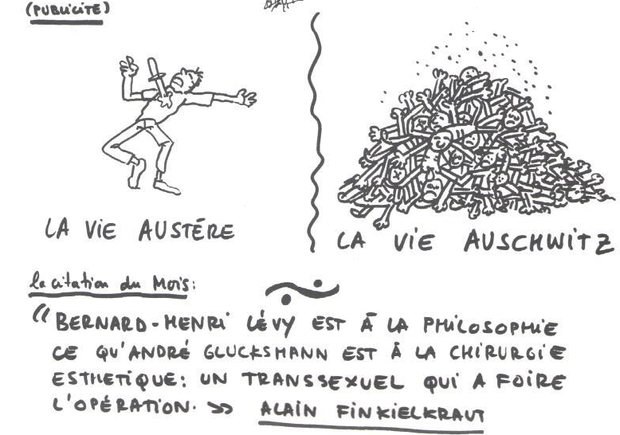 (PUBLICITÉ)
LA VIE AUSTÉRE
LA VIE AUSCHWITZ
la citation du Mois:
“BERNARD-HENRI LÉVY EST À LA PHILOSOPHIE
CE QU'ANDRÉ GLUCKSMANN EST À LA CHIRURGIE
ESTHETIQUE: UN TRANSSEXUEL QUI A FOIRE
L'OPÉRATION. » ALAIN FINKIELKRAUT